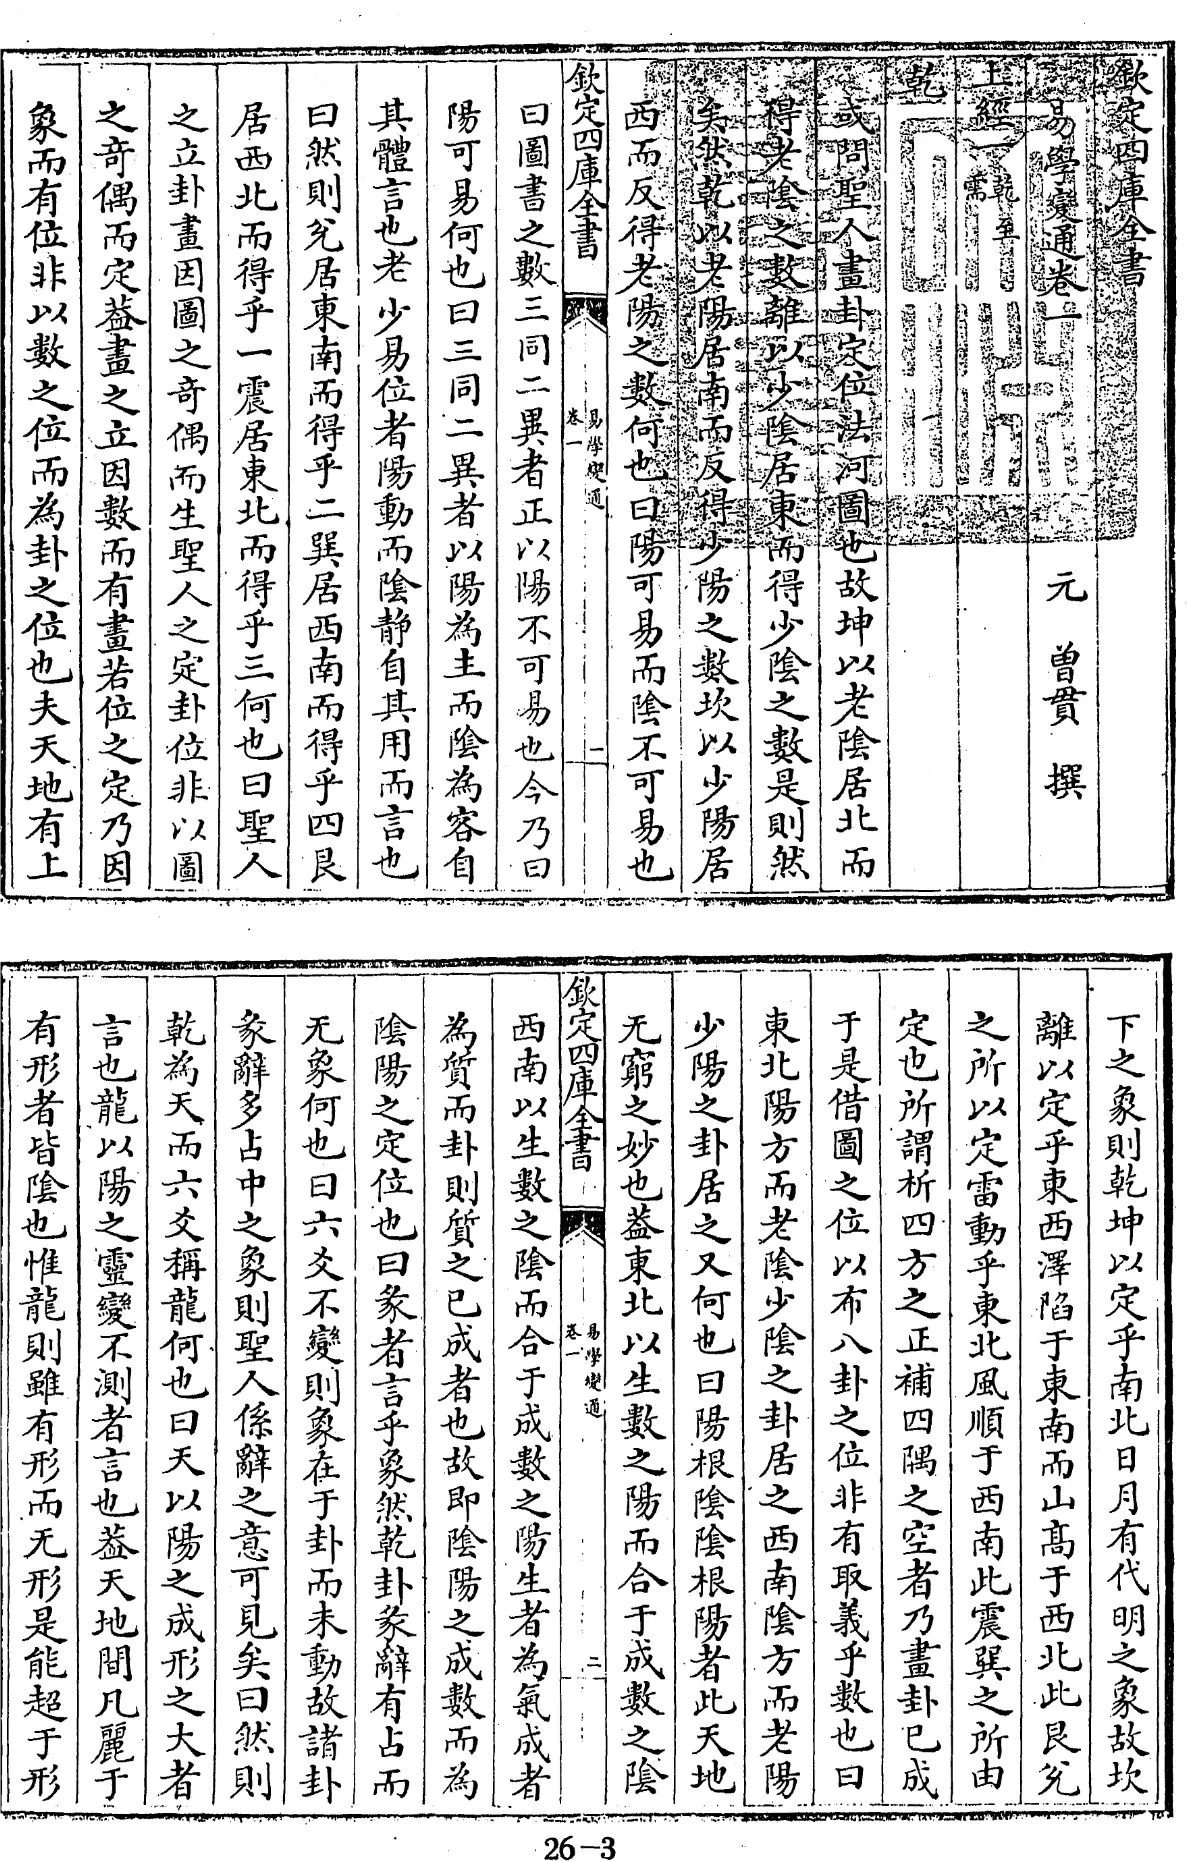 欽定四庫全書
易學變通卷一
元 曾貫 撰
上經一 乾至需
乾
或問聖人畫卦定位法河圖也故坤以老陰居北而
得老陰之數離以少陰居東而得少陰之數是則然
矣然乾以老陽居南而反得少陽之數坎以少陽居
西而反得老陽之數何也曰陽可易而陰不可易也
欽定四庫全書 易學變通 卷一 一
曰圖書之數三同二異者正以陽不可易也今乃曰
陽可易何也曰三同二異者以陽為主而陰為客自
其體言也老少易位者陽動而陰静自其用而言也
曰然則兊居東南而得乎二巽居西南而得乎四艮
居西北而得乎一震居東北而得乎三何也曰聖人
之立卦畫因圖之奇偶而生聖人之定卦位非以圖
之奇偶而定葢畫之立因數而有畫若位之定乃因
象而有位非以數之位而為卦之位也夫天地有上
下之象則乾坤以定乎南北日月有代明之象故坎
離以定乎東西澤陷于東南而山髙于西北此艮兊
之所以定雷動乎東北風順于西南此震巽之所由
定也所謂析四方之正補四隅之空者乃畫卦已成
于是借圖之位以布八卦之位非有取義乎數也曰
東北陽方而老陰少陰之卦居之西南陰方而老陽
少陽之卦居之又何也曰陽根陰陰根陽者此天地
无窮之妙也葢東北以生數之陽而合于成數之陰
欽定四庫全書 易學變通 卷一 二
西南以生數之陰而合于成數之陽生者為氣成者
為質而卦則質之已成者也故即陰陽之成數而為
陰陽之定位也曰彖者言乎象然乾卦彖辭有占而
无象何也曰六爻不變則象在于卦而未動故諸卦
彖辭多占中之象則聖人係辭之意可見矣曰然則
乾為天而六爻稱龍何也曰天以陽之成形之大者
言也龍以陽之靈變不測者言也葢天地間凡麗于
有形者皆陰也惟龍則雖有形而无形是能超于形
26-3